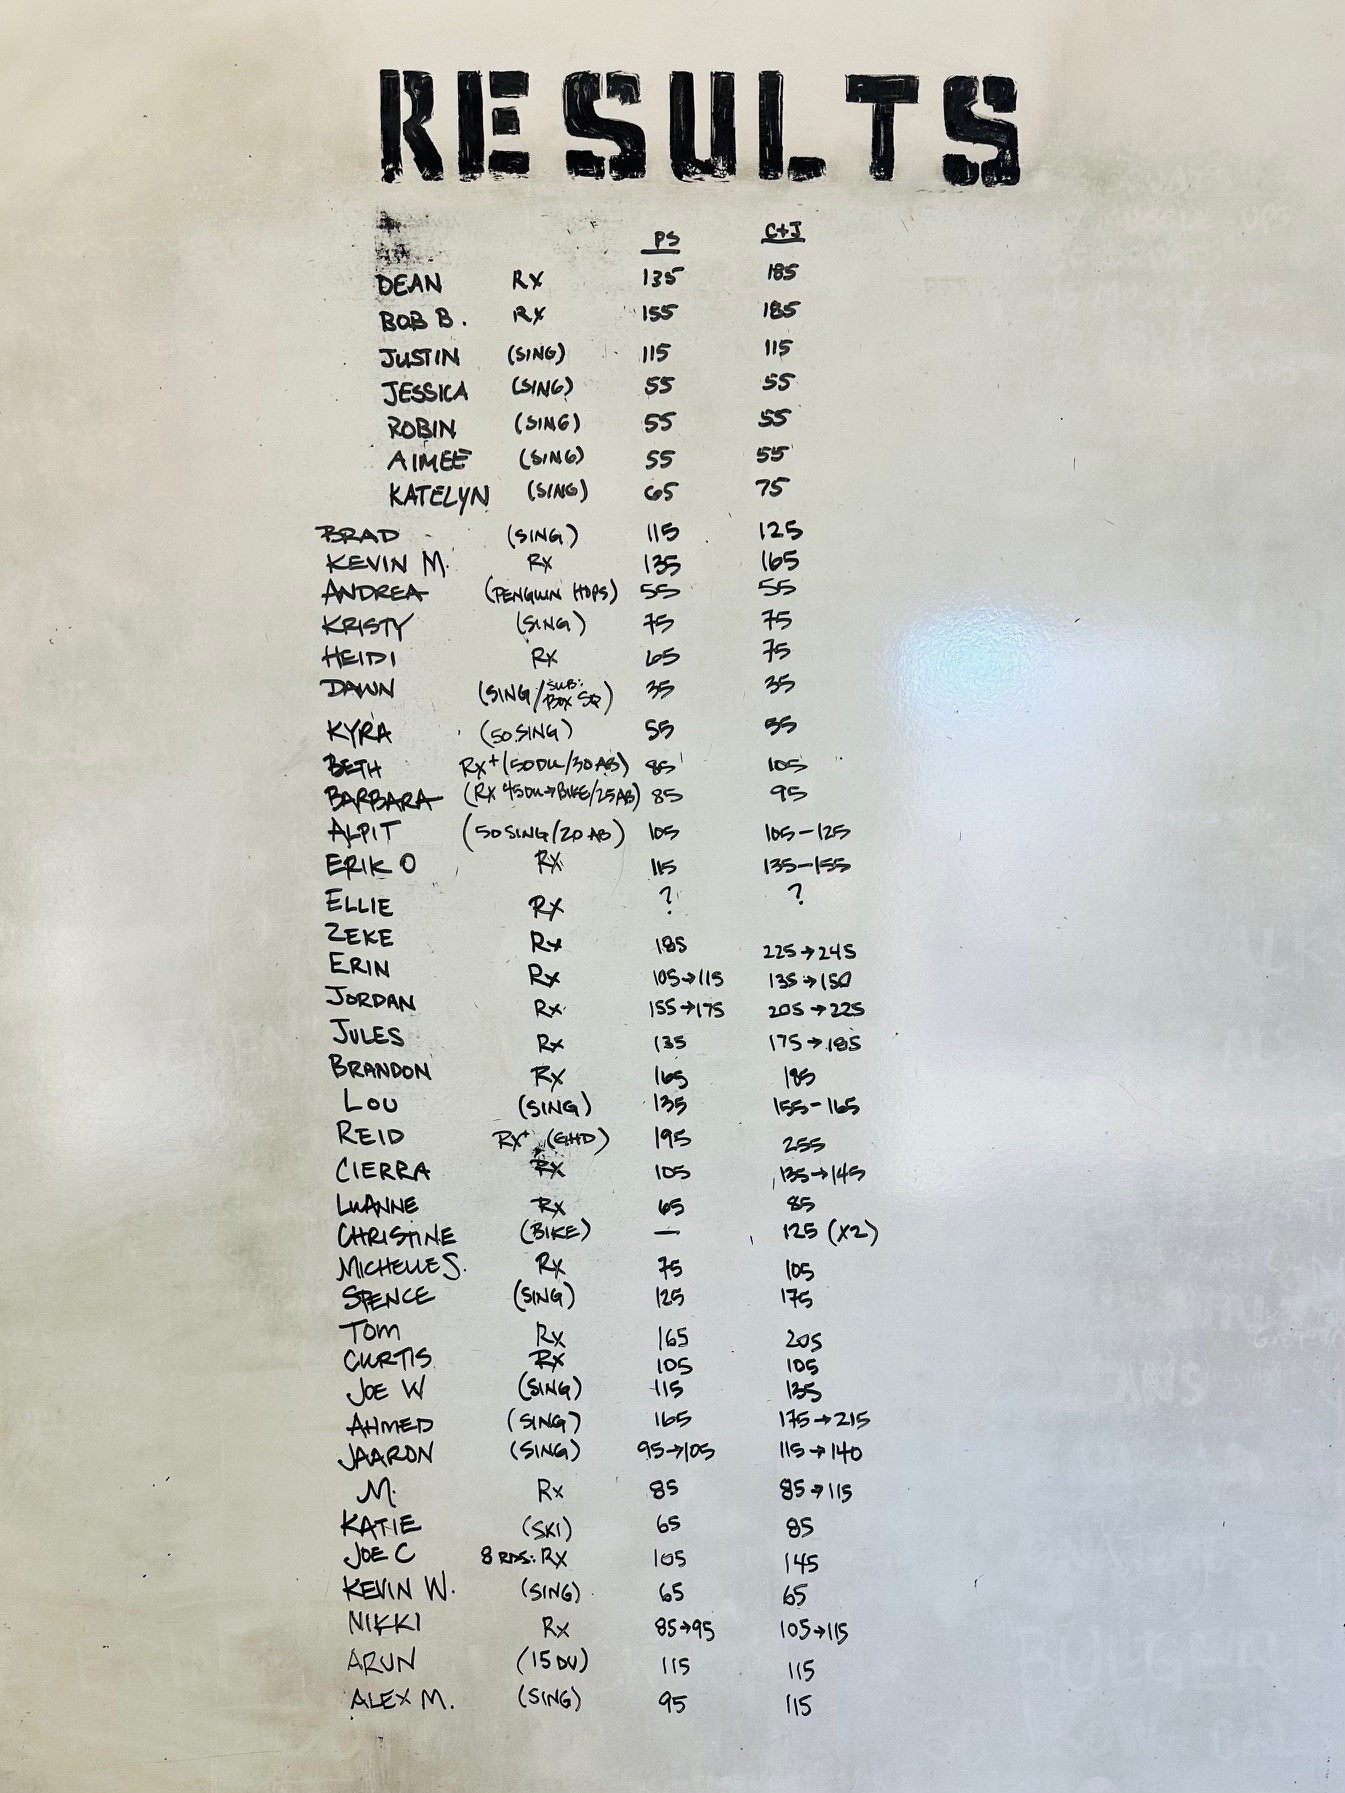 RESULTS
PS C+J
DEAN Rx 135 185
BOB B. Rx 155 185
JUSTIN (SING) 115 115
JESSICA (SING) 55 55
ROBIN (SING) 55 55
AIMEE (SING) 55 55
KATELYN (SING) 65 75
BRAD (SING) 115 125
KEVIN M. Rx 135 165
ANDREA (PENGUIN HOPS) 55 55
KRISTY (SING) 75 75
HEIDI Rx 65 75
DAWN (SING/SUB: BOX SQ) 35 35
KYRA (50 SING) 55 55
BETH Rx+ (50DU/30AB) 85 105
BARBARA (Rx 45DU→BIKE/25AB) 85 95
ALPIT (50 SING/20 AB) 105 105-125
ERIK O Rx 115 135-155
ELLIE Rx ? ?
ZEKE Rx 185 225→245
ERIN Rx 105→115 135→150
JORDAN Rx 155→175 205→225
JULES Rx 135 175→185
BRANDON Rx 165 185
LOU (SING) 135 155-165
REID Rx+ (GHD) 195 255
CIERRA Rx 105 135→145
LUANNE Rx 65 85
CHRISTINE (BIKE) — 125 (X2)
MICHELLE S. Rx 75 105
SPENCE (SING) 125 175
TOM Rx 165 205
CURTIS Rx 105 105
JOE W (SING) 115 135
AHMED (SING) 165 175→215
JAARON (SING) 95→105 115→140
M. Rx 85 85→115
KATIE (SKI) 65 85
JOE C 8 RDS: Rx 105 145
KEVIN W. (SING) 65 65
NIKKI Rx 85→95 105→115
ARUN (15 DU) 115 115
ALEX M. (SING) 95 115